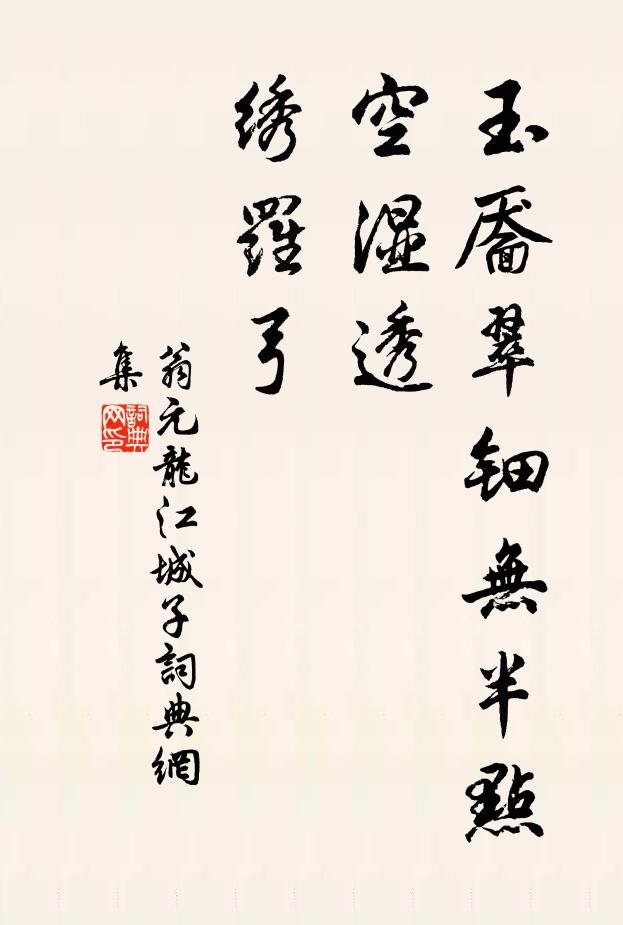 玉靥翠钿無半點
空濕透
绣羅弓
翁元龍江城子詞典網
集
詞典
网印